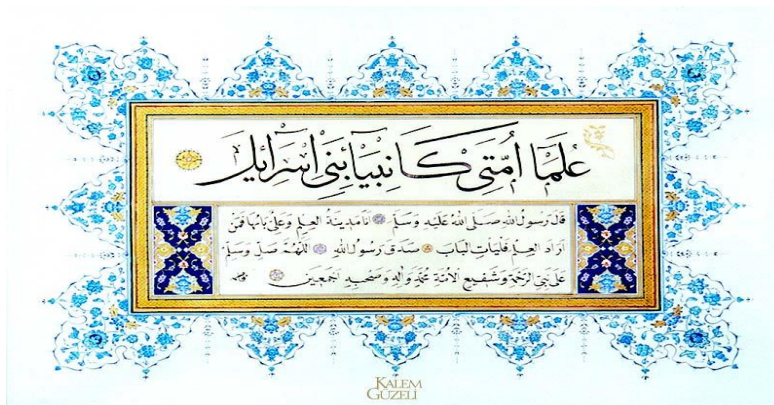 عُلَمَآءُ اُمَّتِى كَاَنْبِيَآءِ بَنِى اِسْرَآئِيلَ
قَالَ رَسُولُ اللهِ صَلَّى اللهُ عَلَيْهِ وَسَلَّمَ اَنَا مَدِينَةُ الْعِلْمِ وَعَلِىٌّ بَابُهَا فَمَنْ
اَرَادَ الْعِلْمَ فَلْيَأْتِ الْبَابَ صَدَقَ رَسُولُ اللهِ اَللّٰهُمَّ صَلِّ وَسَلِّمْ
عَلَى نَبِىِّ الرَّحْمَةِ وَشَفِيعِ الْاُمَّةِ مُحَمَّدٍ وَاٰلِهِ وَصَحْبِهِ اَجْمَعِينَ
KALEM
GÜZELİ